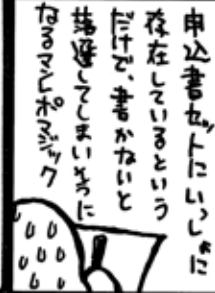 申込書セットにいっしょに
存在しているという
だけで、書かないと
落選してしまいそうに
なるマンレポマジック